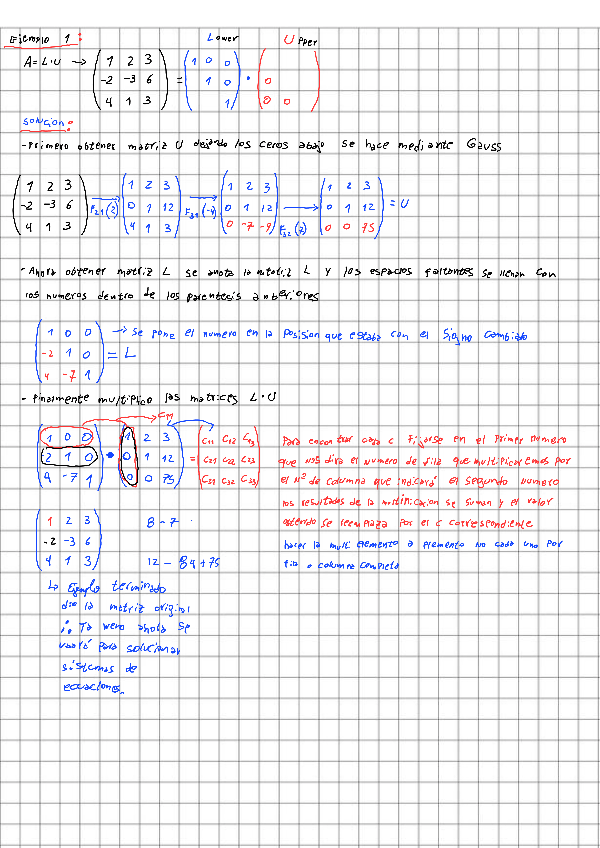 Ejemplo 1:
Lower Upper
A = L·U → ( 1 2 3 ) = ( 1 0 0 ) · ( )
-2 -3 6 1 0 0
4 1 3 1 0 0
Solucion:
- Primero obtener matriz U dejando los ceros abajo se hace mediante Gauss
1 2 3 1 2 3 1 2 3 1 2 3
-2 -3 6 F21(2) 0 1 12 F31(-4) 0 1 12 → 0 1 12 = U
4 1 3 4 1 3 0 -7 -9 F32(7) 0 0 75
- Ahora obtener matriz L se anota la matriz L y los espacios faltantes se llenan con
los numeros dentro de los parentecis anteriores
1 0 0 → Se pone el numero en la posision que estaba con el signo cambiado
-2 1 0 = L
4 -7 1
- Finalmente multiplico las matrices L·U
C11
1 0 0 1 2 3 C11 C12 C13
2 1 0 · 0 1 12 = C21 C22 C23
4 -7 1 0 0 75 C31 C32 C33
Para encontrar cada c fijarse en el primer numero
que nos dira el numero de fila que multiplicaremos por
el Nº de columna que indicará el segundo numero
los resultados de la multiplicacion se suman y el valor
obtenido se reemplaza por el c correspondiente
hacer la mult elemento a elemento no cada uno por
fila o columna completa
1 2 3 8 - 7
-2 -3 6
4 1 3 12 - 84 + 75
↳ Ejemplo terminado
dio la matriz original
ahora se
usará para solucionar
sistemas de
ecuaciones.